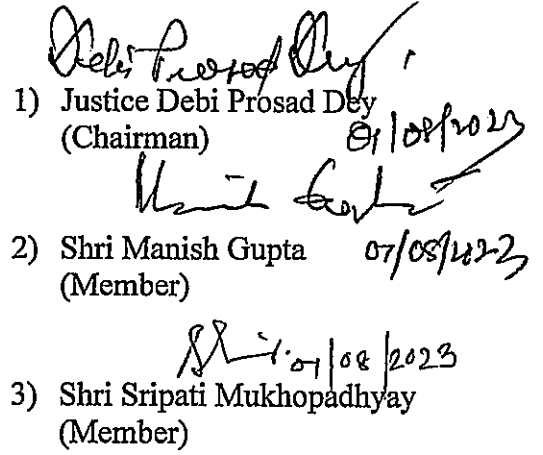 Debi Prosad Dey
1) Justice Debi Prosad Dey
(Chairman)
01/08/2023
2) Shri Manish Gupta 07/08/2023
(Member)
01/08/2023
3) Shri Sripati Mukhopadhyay
(Member)